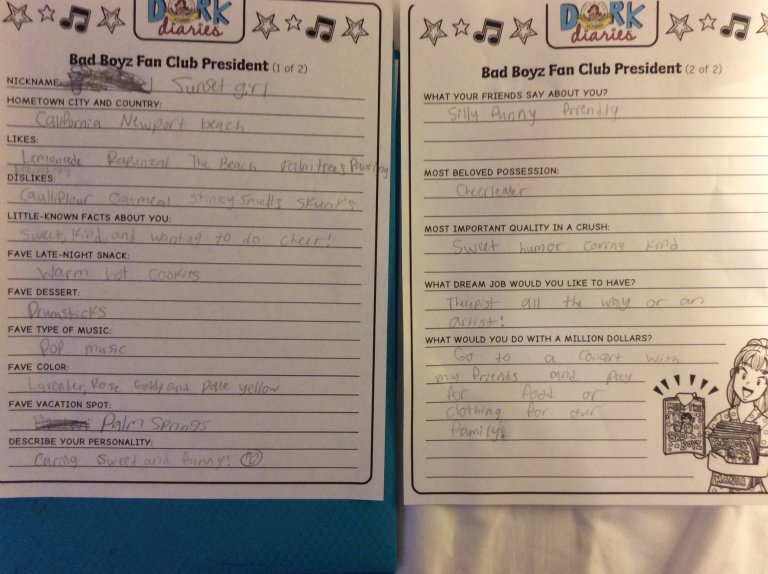 DORK
diaries
Bad Boyz Fan Club President (1 of 2)
NICKNAME: Sunset girl
HOMETOWN CITY AND COUNTRY:
California Newport beach
LIKES:
Lemonade Rapunzel The Beach palm trees Painting
DISLIKES:
Cauliflour Oatmeal stinky smells skunks
LITTLE-KNOWN FACTS ABOUT YOU:
Sweet, kind, and wanting to do cheer!
FAVE LATE-NIGHT SNACK:
Warm hot cookies
FAVE DESSERT:
Drumsticks
FAVE TYPE OF MUSIC:
Pop music
FAVE COLOR:
Lavender, Rose Gold, and Pale yellow
FAVE VACATION SPOT:
Palm Springs
DESCRIBE YOUR PERSONALITY:
Caring sweet and funny!
DORK
diaries
Bad Boyz Fan Club President (2 of 2)
WHAT YOUR FRIENDS SAY ABOUT YOU?
Silly funny friendly
MOST BELOVED POSSESSION:
Cheerleader
MOST IMPORTANT QUALITY IN A CRUSH:
Sweet humor caring kind
WHAT DREAM JOB WOULD YOU LIKE TO HAVE?
Therapist all the way or an
artist!
WHAT WOULD YOU DO WITH A MILLION DOLLARS?
Go to a concert with
my friends and pay
for food or
clothing for our
family.
MANIA